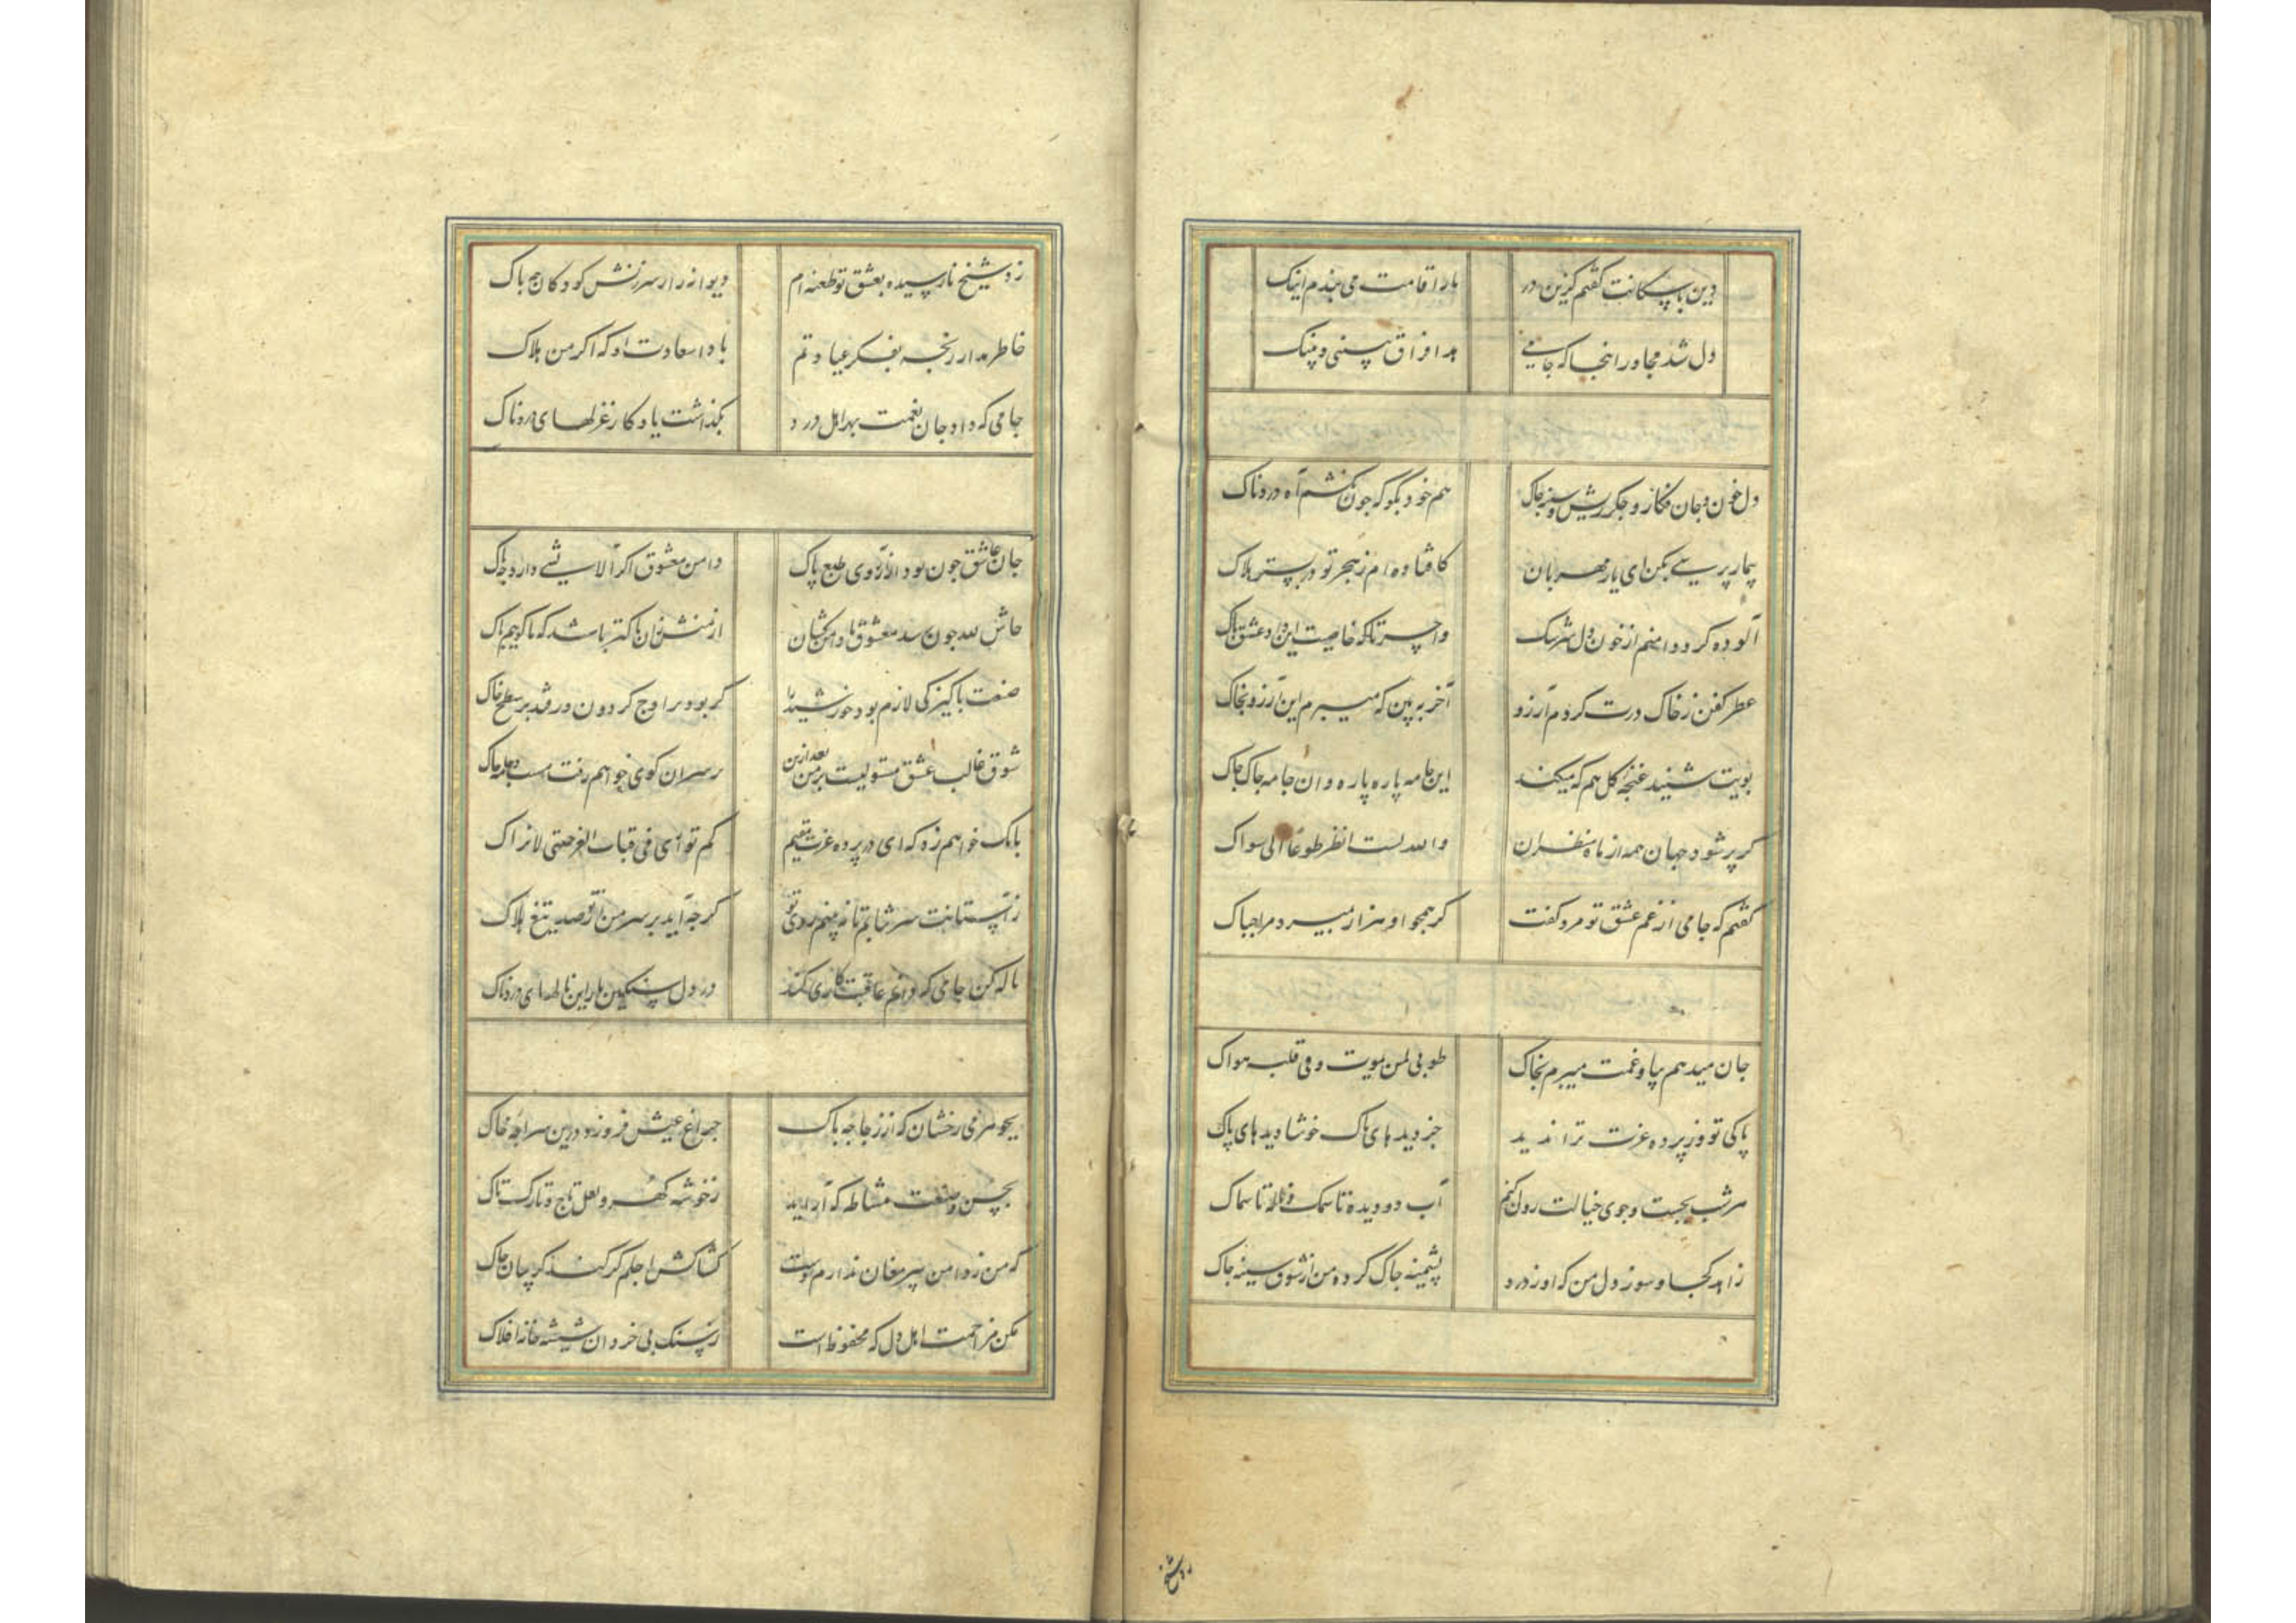 وین با سکانت گفتم کزین در بار اقامت می بندم اینک
دل شد مجاور اینجا که جامی
دل خون و جان فکار و جکر ریش و سینه جاک هم خود بگو که جون نکشم آه دردناک
بیمار پرسیی بکن ای یار مهربان کافتاده ام ز هجر تو در بستر هلاک
آلوده کرد دامنم از خون دل سرشک واحسرتا که خاصیت این داد عشق پاک
عطر کفن ز خاک درت کردم آرزو آخر ببین که میبرم این آرزو بخاک
بویت شنید غنجه و کل هم که میکند این جامه پاره پاره و آن جامه جاک جاک
کر پر شود جهان همه از ماه منظران والله لست انظر طوعا الی سواک
کفتم که جامی از غم عشق تو مرد کفت کر همجو او هزار بمیرد مرا جباک
جان میدهم بیا و غمت میبرم بخاک طوبی لمن یموت و فی قلبه هواک
پاکی تو وز پرده عزت ترا ندید جز دیدهای پاک خوشا دیدهای پاک
هر شب بجست و جوی خیالت روان کنم آب دو دیده تا سمک و ناله تا سماک
زاهد کجا و سوز دل من که او ز درد پشمینه جاک کرده من از شوق سینه جاک
زد شیخ
زد شیخ نارسیده بعشق تو طعنه ام دیوانه را ز سرزنش کودکان جه باک
خاطر مدار رنجه بفکر عیادتم بادا سعادت تو که اکر من هلاک
جامی که داد جان بغمت بهر اهل درد بکذاشت یادکار غزلهای دردناک
جان عاشق جون بود از آرزوی طبع پاک دامن معشوق اکر آلایشی دارد جه باک
حاش لله جون رسد معشوق را دامن کشان
صفت پاکیزکی لازم بود خورشید را کر بود بر اوج کردون ور فتد بر سطح خاک
شوق غالب عشق مستولیست بر من بعد ازین بر سر آن کوی خواهم رفت مست و جامه جاک
بانک خواهم زد که ای در پرده عزت مقیم کم تواری فی قباب العز حتی لا نراک
ز آستانت سر نتابم تا نه بینم روی تو کرجه آید بر سر من از تو صد تیغ هلاک
ناله کن جامی که دانم عاقبت کاری کند در دل سنکین یار این نالهای دردناک
بجوهر می رخشان که از زجاجه پاک جراغ عیش فروزد درین سراجه خاک
بحسن صنعت مشاطه که آراید ز خوشه کهر و لعل تاج و تارک تاک
که من ز دامن پیر مغان ندارم دست کشاکش اجلم کر کند کریبان جاک
مکن مزاحمت اهل دل که محفوظ است ز سنک بی خردان شیشه خانه افلاک